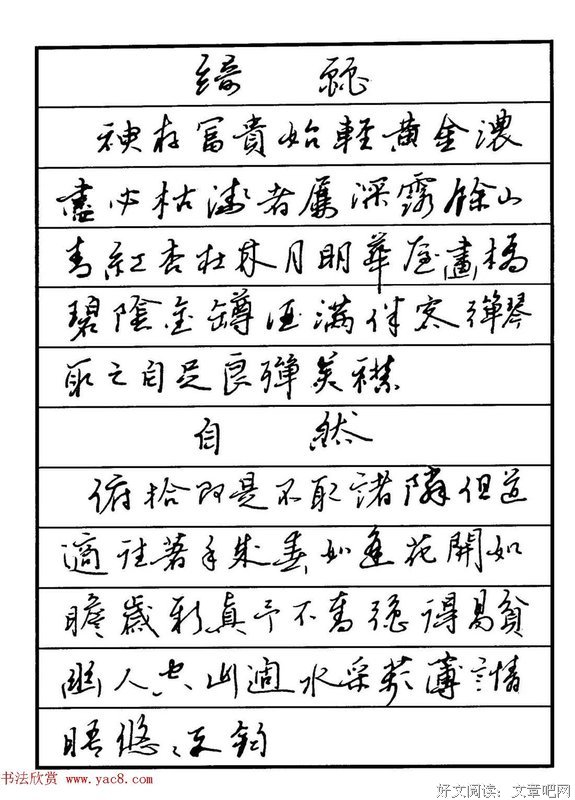 綺麗
神存富貴始輕黃金濃
盡必枯淺者屢深露餘山
青紅杏在林月明華屋畫橋
碧陰金罇酒滿伴客彈琴
取之自足良彈美襟
自然
俯拾即是不取諸隣俱道
適往著手成春如逢花開如
瞻歲新真予不奪強得易貧
幽人空山過水采蘋薄言情
晤悠悠天鈞
书法欣赏 www.yac8.com
好文阅读：文章吧网